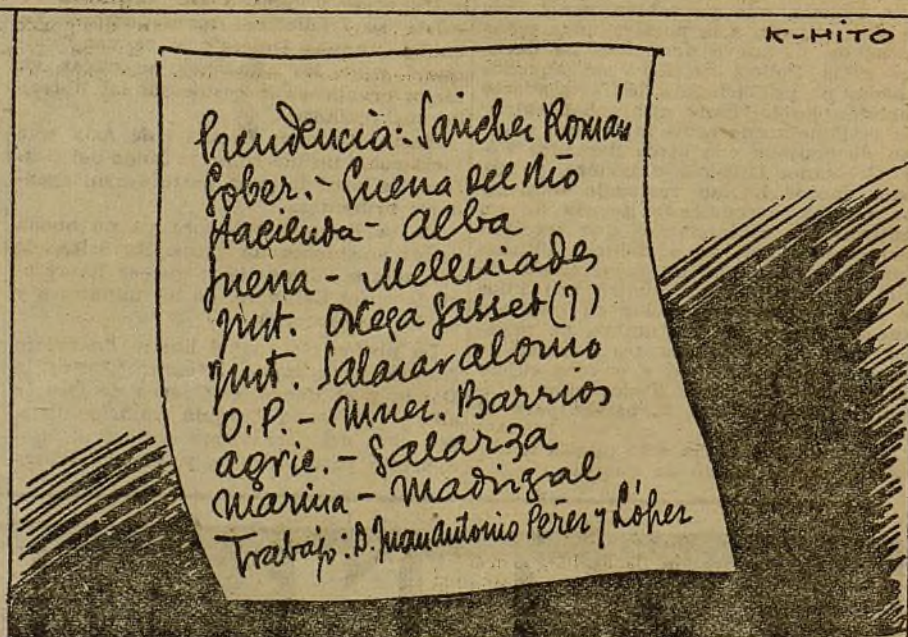 K-HITO
Presidencia: Sánchez Román
Gober. - Guerra del Río
Hacienda - Alba
Guerra - Melquiades
Inst. Ortega Gasset (?)
Just. Salazar Alonso
O.P. - Mnez. Barrios
Agric. - Galarza
Marina - Madrigal
Trabajo: D. Juan Antonio Pérez y López